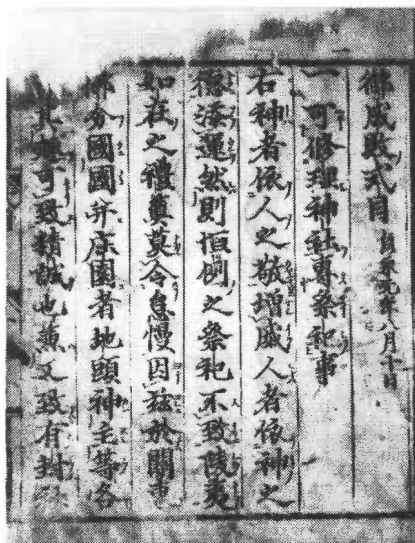 御成敗式目 貞永元年八月十日
一可修理神社專祭祀事
右神者依人之敬增威人者依神之
德添運然則恒例之祭祀不致陵夷
如在之禮奠莫令怠慢因茲於關東
御分國國并庄園者地頭神主等各
其趣可致精誠也兼又致有封